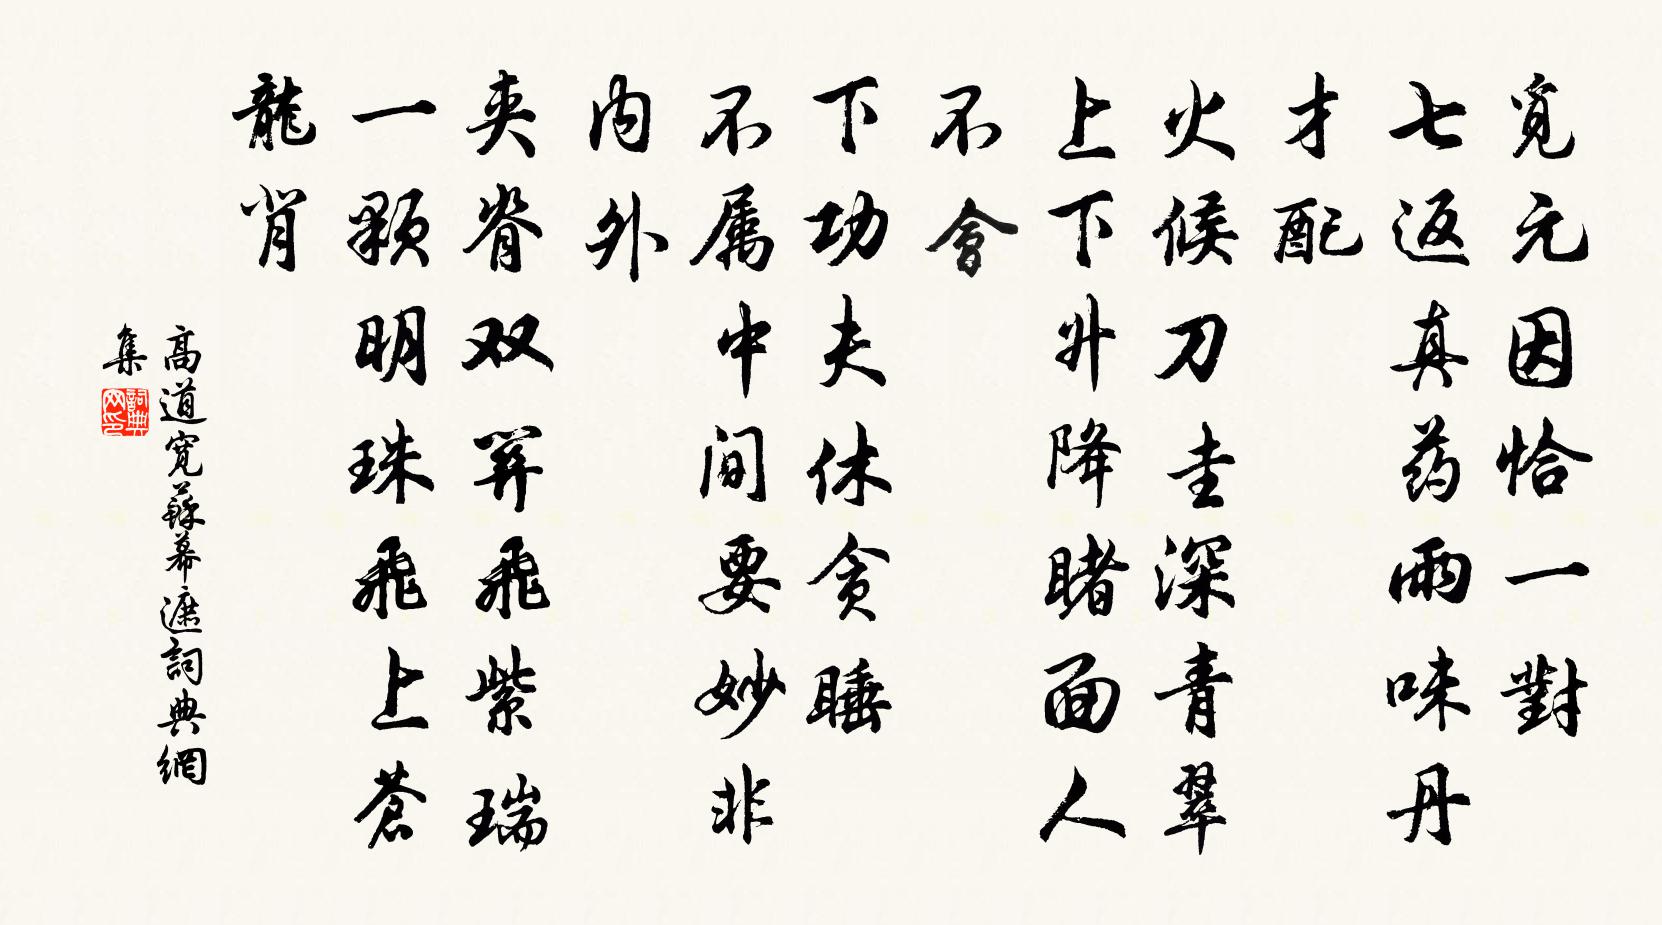 覓元因恰一對
七返真药雨味丹
才配
火候刀圭深青翠
上下升降睹面人
不會
下功夫休贪睡
不属中间要妙非
内外
夹脊双关飛紫瑞
一顆明珠飛上蒼
龍背
高道寬蘇幕遮詞典網
集
詞典网印